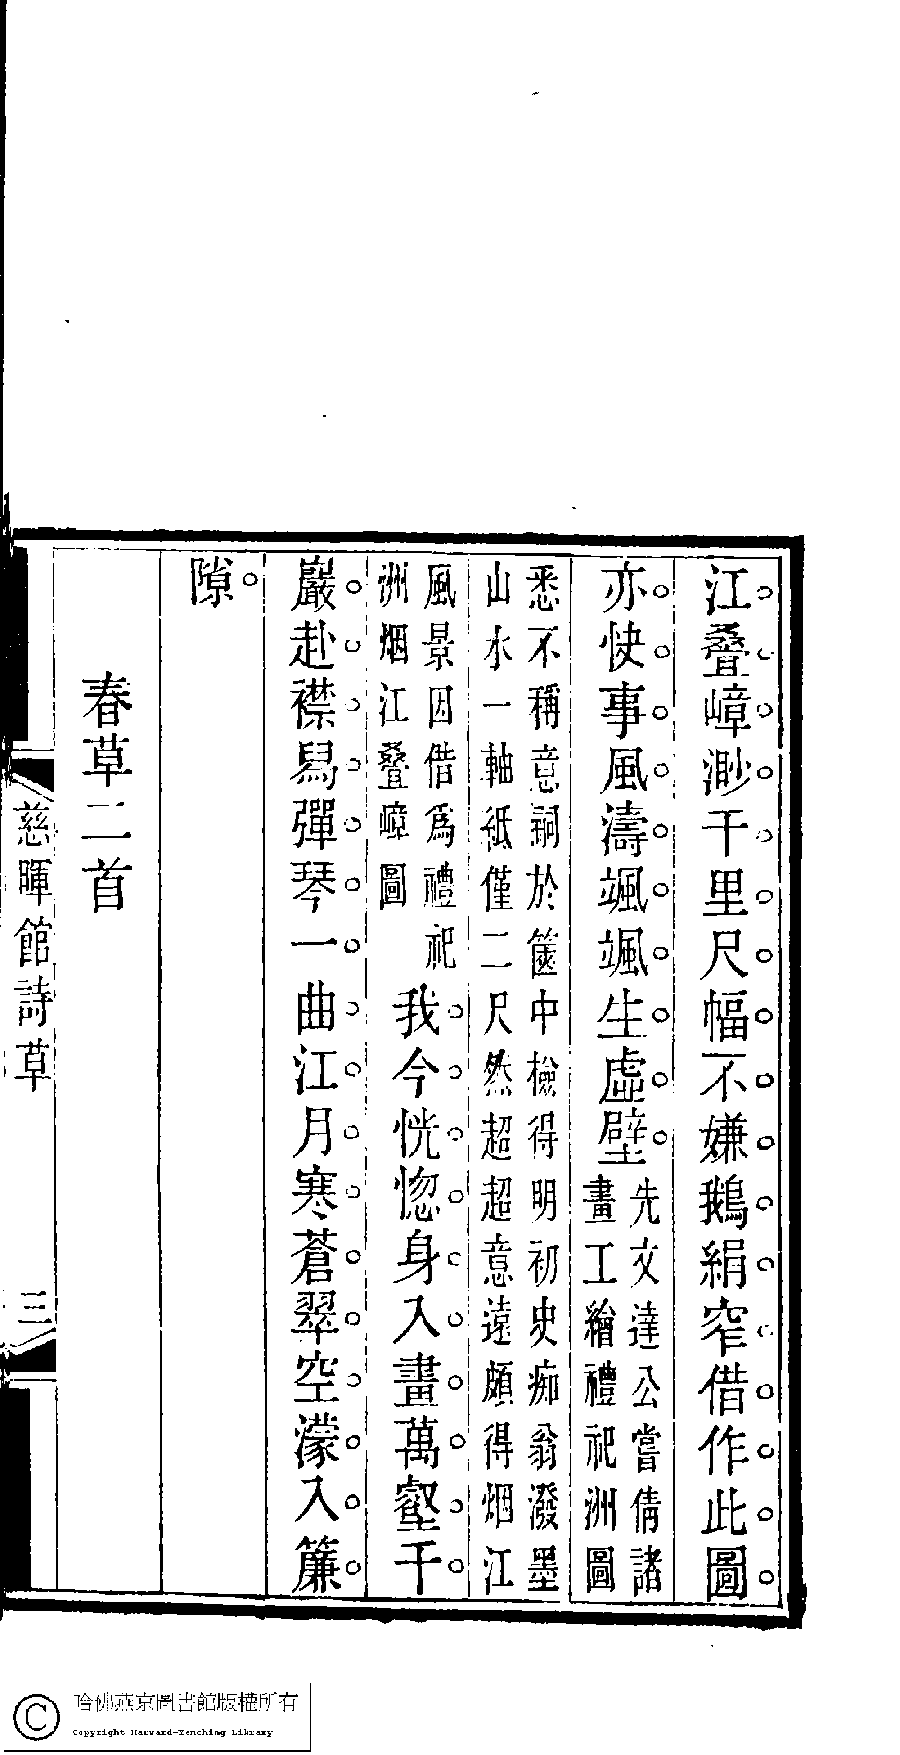 江叠嶂渺千里尺幅不嫌鵝絹窄借作此圖
亦快事風濤颯颯生虛壁先文達公嘗倩諸
畫工繪禮祀洲圖
悉不稱意嗣於篋中檢得明初史痴翁潑墨
山水一軸紙僅二尺然超超意遠頗得烟江
風景因借爲禮祀
洲烟江叠嶂圖
我今恍惚身入畫萬壑千
巖赴襟舄彈琴一曲江月寒蒼翠空濛入簾
隙
春草二首
慈暉館詩草
三
哈佛燕京圖書館版權所有
Copyright Harvard-Yenching Library